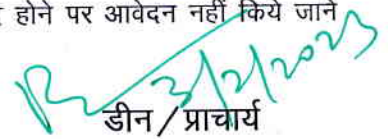 होने पर आवेदन नहीं किये जाने
3/2/2023
डीन / प्राचार्य